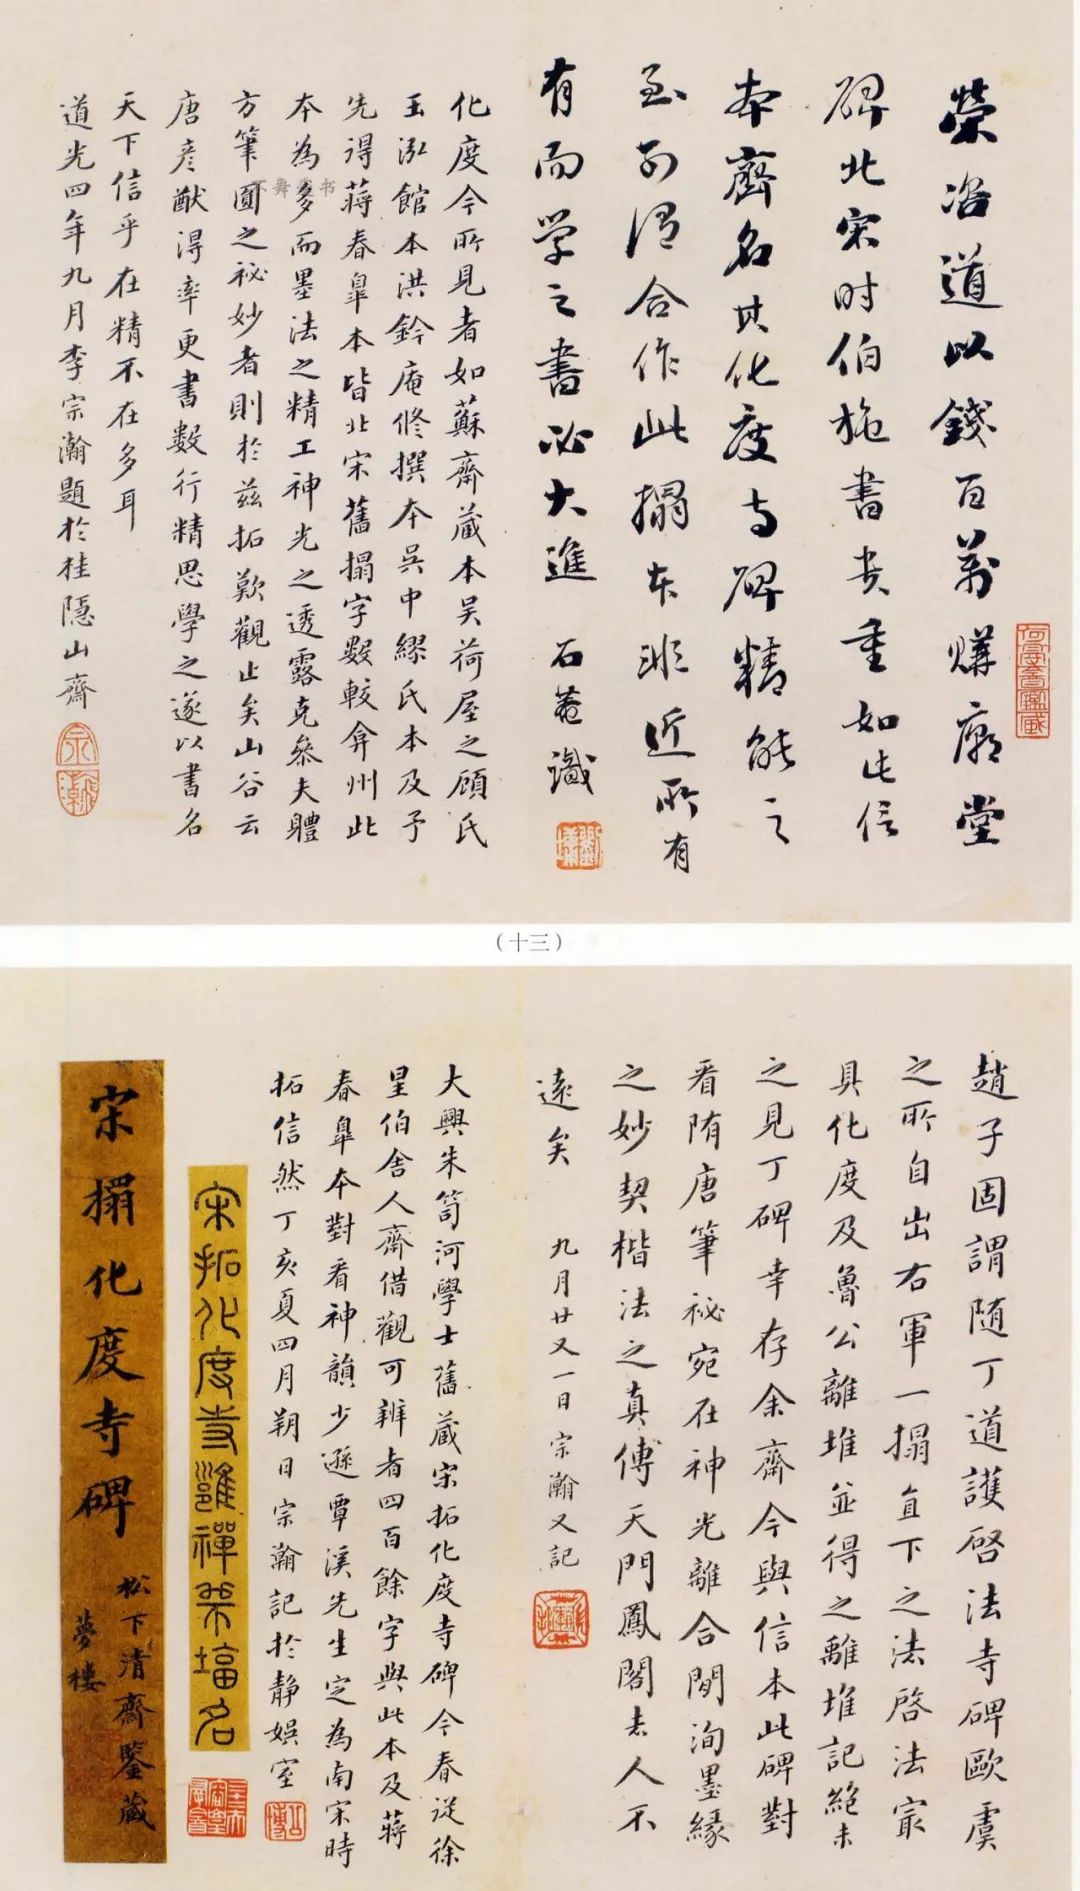 榮咨道以錢百萬購廟堂
碑北宋时伯施書貴重如此信
本齊名其化度寺碑精能之
至前得合作此搨本非近所有
有而学之書必大進 石菴識
化度今所見者如蘇齋藏本吴荷屋之顧氏
玉泓館本洪鈐庵修撰本吴中繆氏本及予
先得蔣春皐本皆北宋舊搨字數較弇州此
本為多而墨法之精工神光之透露克叅夫體
方筆圓之祕妙者則於兹拓歎觀止矣山谷云
唐彦猷淂率更書數行精思學之遂以書名
天下信乎在精不在多耳
道光四年九月李宗瀚題於桂隱山齋
(十三)
趙子固謂随丁道護啓法寺碑歐虞
之所自出右軍一搨直下之法啓法㝡
具化度及魯公離堆並得之離堆記絕未
之見丁碑幸存余齋今與信本此碑對
看随唐筆祕宛在神光離合間洵墨緣
之妙契楷法之真傳天門鳳閣去人不
遠矣 九月廿又一日宗瀚又記
大興朱笥河學士舊藏宋拓化度寺碑今春從徐
星伯舍人齋借觀可辨者四百餘字與此本及蔣
春皐本對看神韻少遜覃溪先生定為南宋時
拓信然丁亥夏四月朔日宗瀚記於静娱室
宋拓化度寺邕禪師塔名
宋搨化度寺碑
松下清齋鑒藏
夢樓